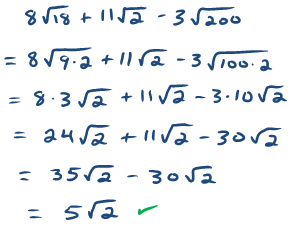 8√18 + 11√2 - 3√200
= 8√9·2 + 11√2 - 3√100·2
= 8·3√2 + 11√2 - 3·10√2
= 24√2 + 11√2 - 30√2
= 35√2 - 30√2
= 5√2 ✓